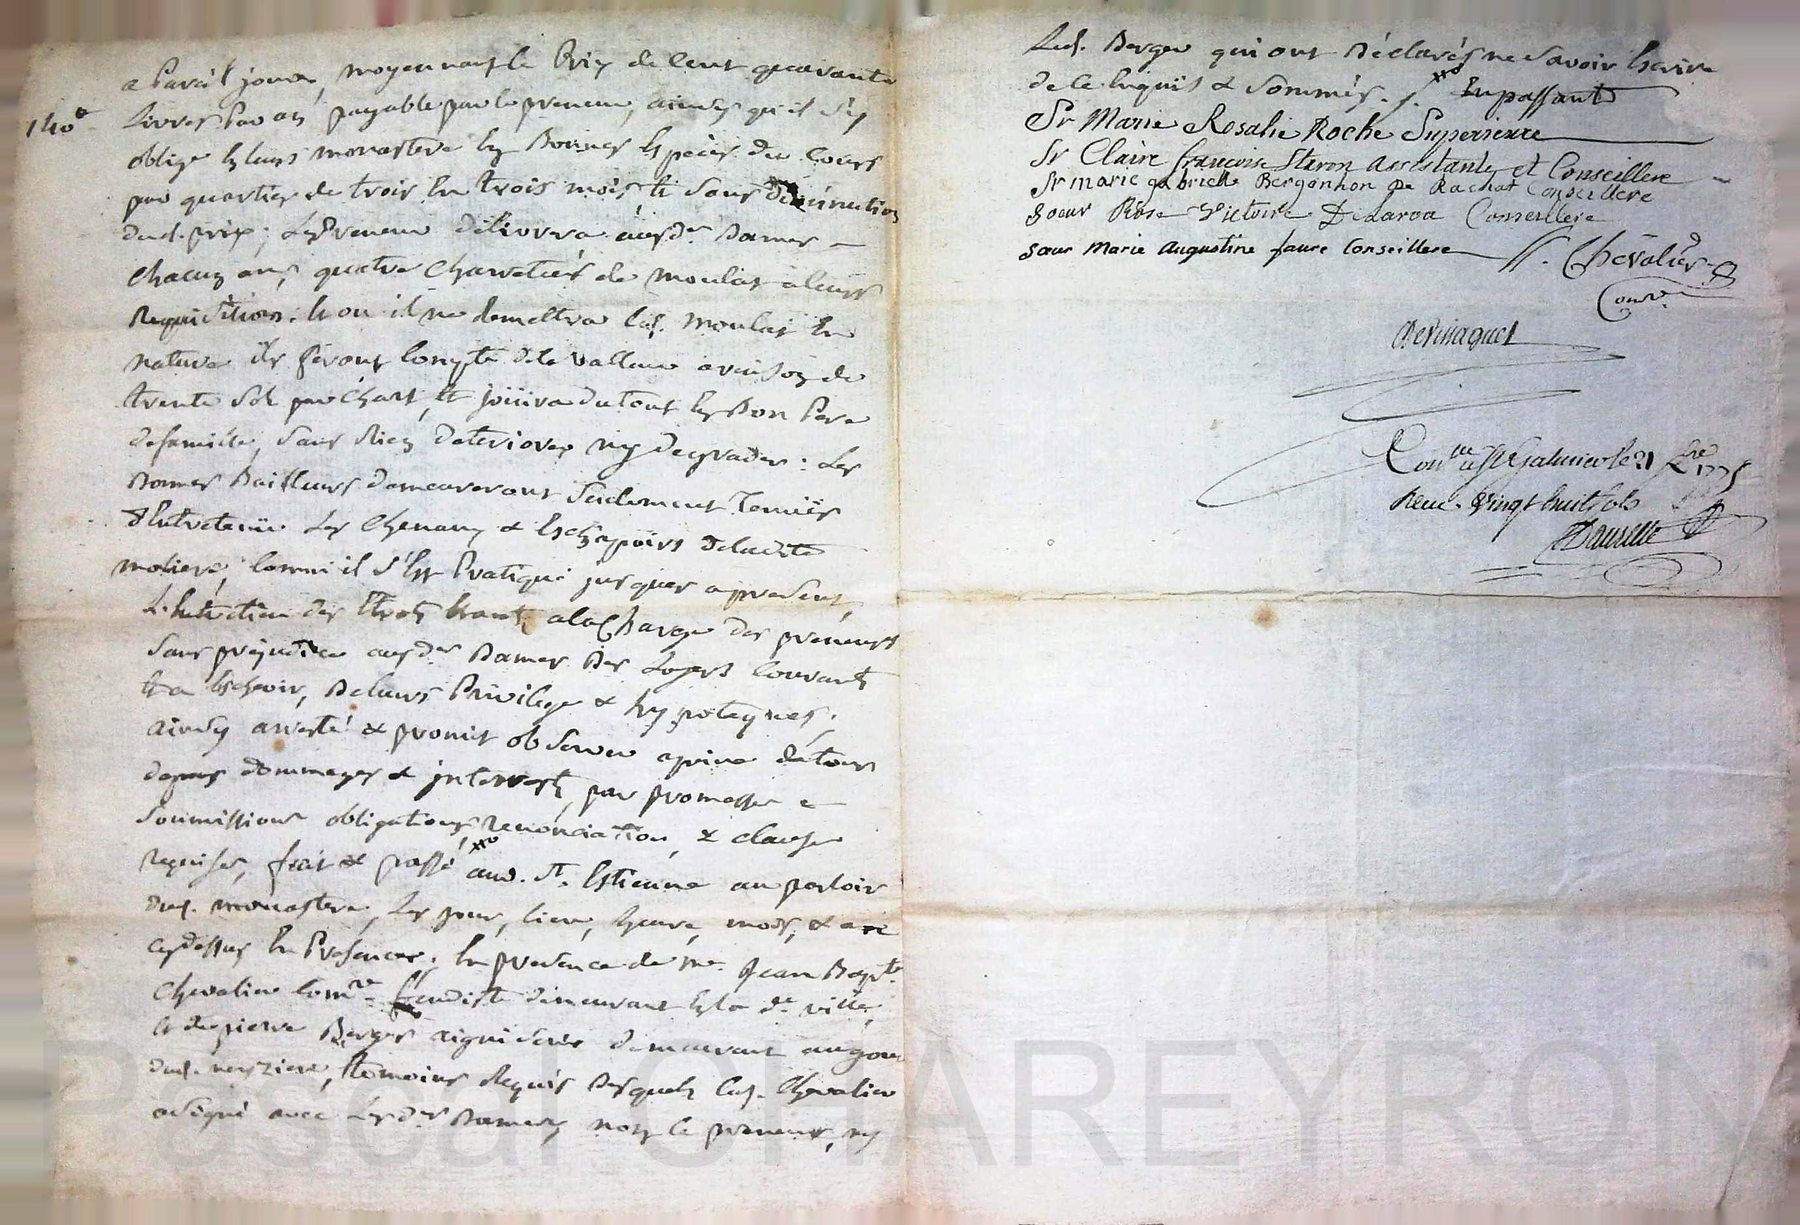 a Pareil jour, moyennant le Prix de Cent quarante
140#
Livres par an payable par le preneur, ainsy qu'il s'y
oblige leurs monastere en Bonnes Especes du Cours
par quartier de trois En trois mois, et sans diminution
dud. prix; Le Preneur delivrera auxd.es Dames
chacuns ans, quatre charretées de moulas a leurs
Requisition: Et ou il ne remettra led. moulas En
nature ils feront Compte de la valleur a raison de
trente sols par Chart, et joüira du tout En Bon Pere
de famille, sans Rien deteriorer ny degrader: Les
Dames Bailleurs demeureront seulement Tenües
d'Entretenir Les Chenaux & Eschapoirs de ladite
moliere, Comme il s'Est Pratiqué jusques a present,
L'Entretien des a la Charge des preneurs
sans prejudice auxd.es Dames Des Loyers Courants
Et a Escheoir, De leurs Privilege & hypoteques;
ainsy arresté & promis observer a peine de tous
depens dommages & interrests par promesses
soumissions obligations, renonciation, & clauses
requises, fait & passé aud. St. Estienne au parloir
dud. monastere, Les jour, lieu, heure, mois, & an
cy dessus En Presence de me. Jean Bapt.te
Chevalier Com.re feudiste demeurant En la d.e ville,
& de pierre Berger aiguiserie demeurant au
dud. temoins Requis Desquels led. Chevalier
a signé avec Lesd.es Dames, non le preneur, ny
Led. Berger qui ont Déclarés ne savoir Escrire
de ce Enquis & Sommés. En passant
Sr Marie Rosalie Roche Superieure
Sr Claire françoise Staron Assistante et Conseillere
Sr marie gabrielle Bergonhon De Rachat Conseillere
Soeur Rose Victoire Delaroa Conseillere
Sœur Marie Augustine faure Conseillere
Chevalier
Com.re
Con.lé a St Galmier le 21 1775
Receu Vingt huit sols
Pascal CHAREYRON